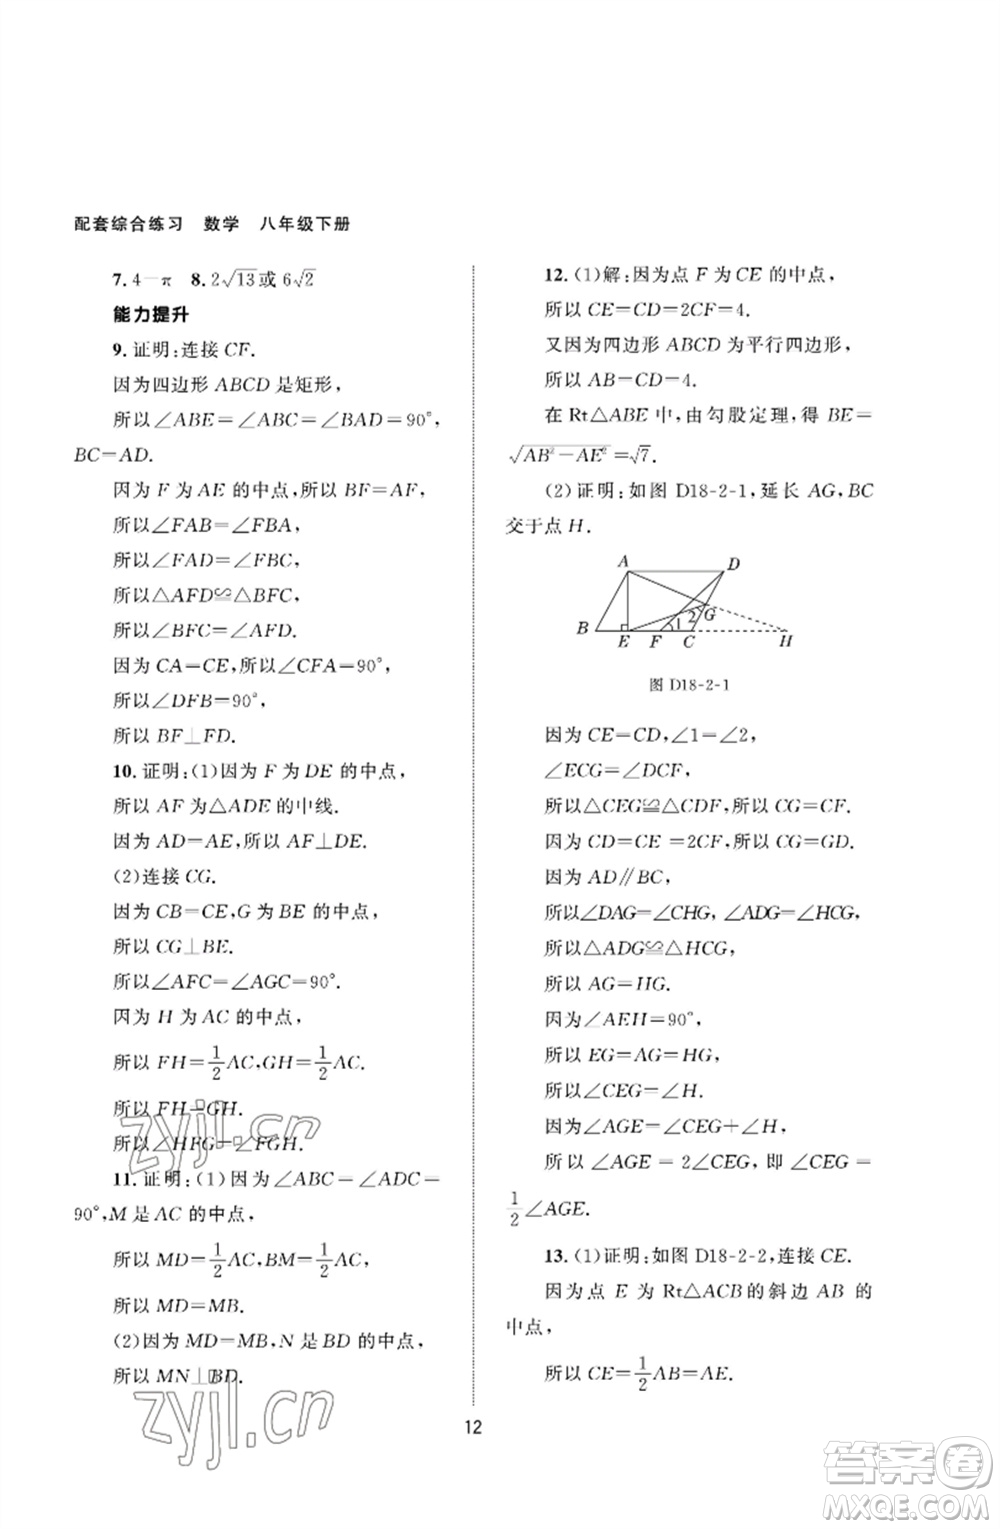 配套综合练习 数学 八年级下册
7. 4－π 8. 2√13或 6√2
能力提升
9. 证明:连接 CF.
因为四边形 ABCD 是矩形,
所以∠ABE＝∠ABC＝∠BAD＝90°,
BC＝AD.
因为 F 为 AE 的中点,所以 BF＝AF,
所以∠FAB＝∠FBA,
所以∠FAD＝∠FBC,
所以△AFD≌△BFC,
所以∠BFC＝∠AFD.
因为 CA＝CE,所以∠CFA＝90°,
所以∠DFB＝90°,
所以 BF⊥FD.
10. 证明:(1)因为 F 为 DE 的中点,
所以 AF 为△ADE 的中线.
因为 AD＝AE,所以 AF⊥DE.
(2)连接 CG.
因为 CB＝CE,G 为 BE 的中点,
所以 CG⊥BE.
所以∠AFC＝∠AGC＝90°.
因为 H 为 AC 的中点,
所以 FH＝1/2 AC,GH＝1/2 AC.
所以 FH＝GH.
所以∠HFG＝∠FGH.
11. 证明:(1)因为∠ABC＝∠ADC＝
90°,M 是 AC 的中点,
所以 MD＝1/2 AC,BM＝1/2 AC,
所以 MD＝MB.
(2)因为 MD＝MB,N 是 BD 的中点,
所以 MN⊥BD.
12. (1)解:因为点 F 为 CE 的中点,
所以 CE＝CD＝2CF＝4.
又因为四边形 ABCD 为平行四边形,
所以 AB＝CD＝4.
在 Rt△ABE 中,由勾股定理,得 BE＝
√(AB²－AE²)＝√7.
(2)证明:如图 D18-2-1,延长 AG,BC
交于点 H.
A D
1 2 G
B E F C H
图 D18-2-1
因为 CE＝CD,∠1＝∠2,
∠ECG＝∠DCF,
所以△CEG≌△CDF,所以 CG＝CF.
因为 CD＝CE＝2CF,所以 CG＝GD.
因为 AD∥BC,
所以∠DAG＝∠CHG,∠ADG＝∠HCG,
所以△ADG≌△HCG,
所以 AG＝HG.
因为∠AEH＝90°,
所以 EG＝AG＝HG,
所以∠CEG＝∠H.
因为∠AGE＝∠CEG＋∠H,
所以∠AGE＝2∠CEG,即∠CEG＝
1/2∠AGE.
13. (1)证明:如图 D18-2-2,连接 CE.
因为点 E 为 Rt△ACB 的斜边 AB 的
中点,
所以 CE＝1/2 AB＝AE.
12
zyjl.cn
zyjl.cn
答案圈
MXQE.COM